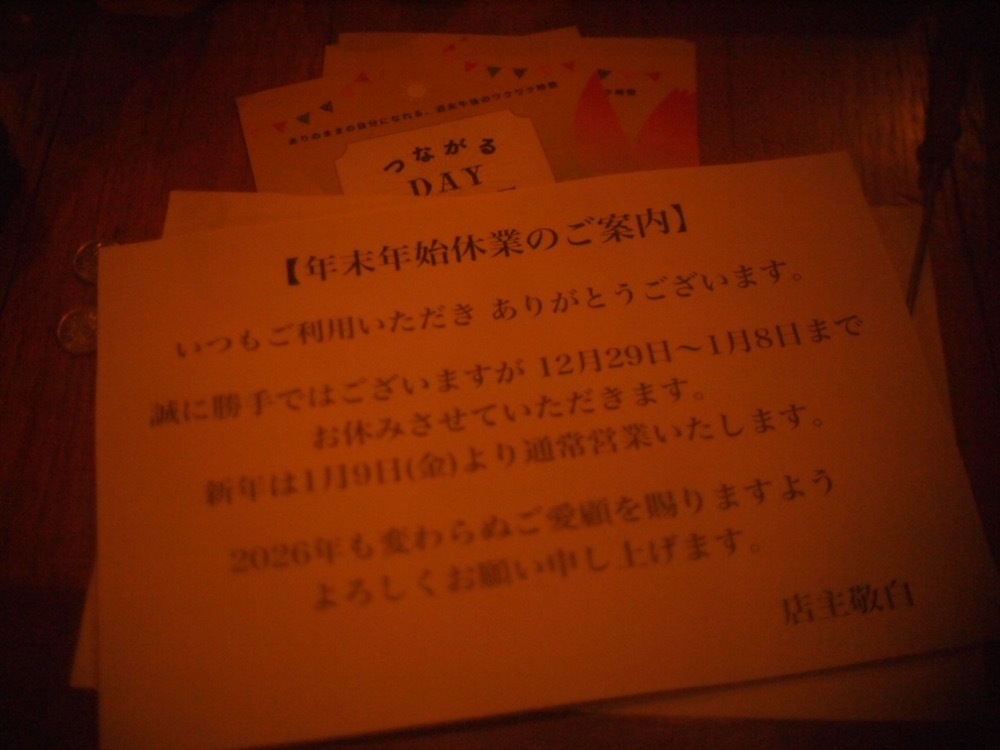 ありのままの自分になれる、週末午後のワクワク時間
ク時間
つながる
DAY
【年末年始休業のご案内】
いつもご利用いただき ありがとうございます。
誠に勝手ではございますが 12月29日～1月8日まで
お休みさせていただきます。
新年は1月9日(金)より通常営業いたします。
2026年も変わらぬご愛顧を賜りますよう
よろしくお願い申し上げます。
店主敬白